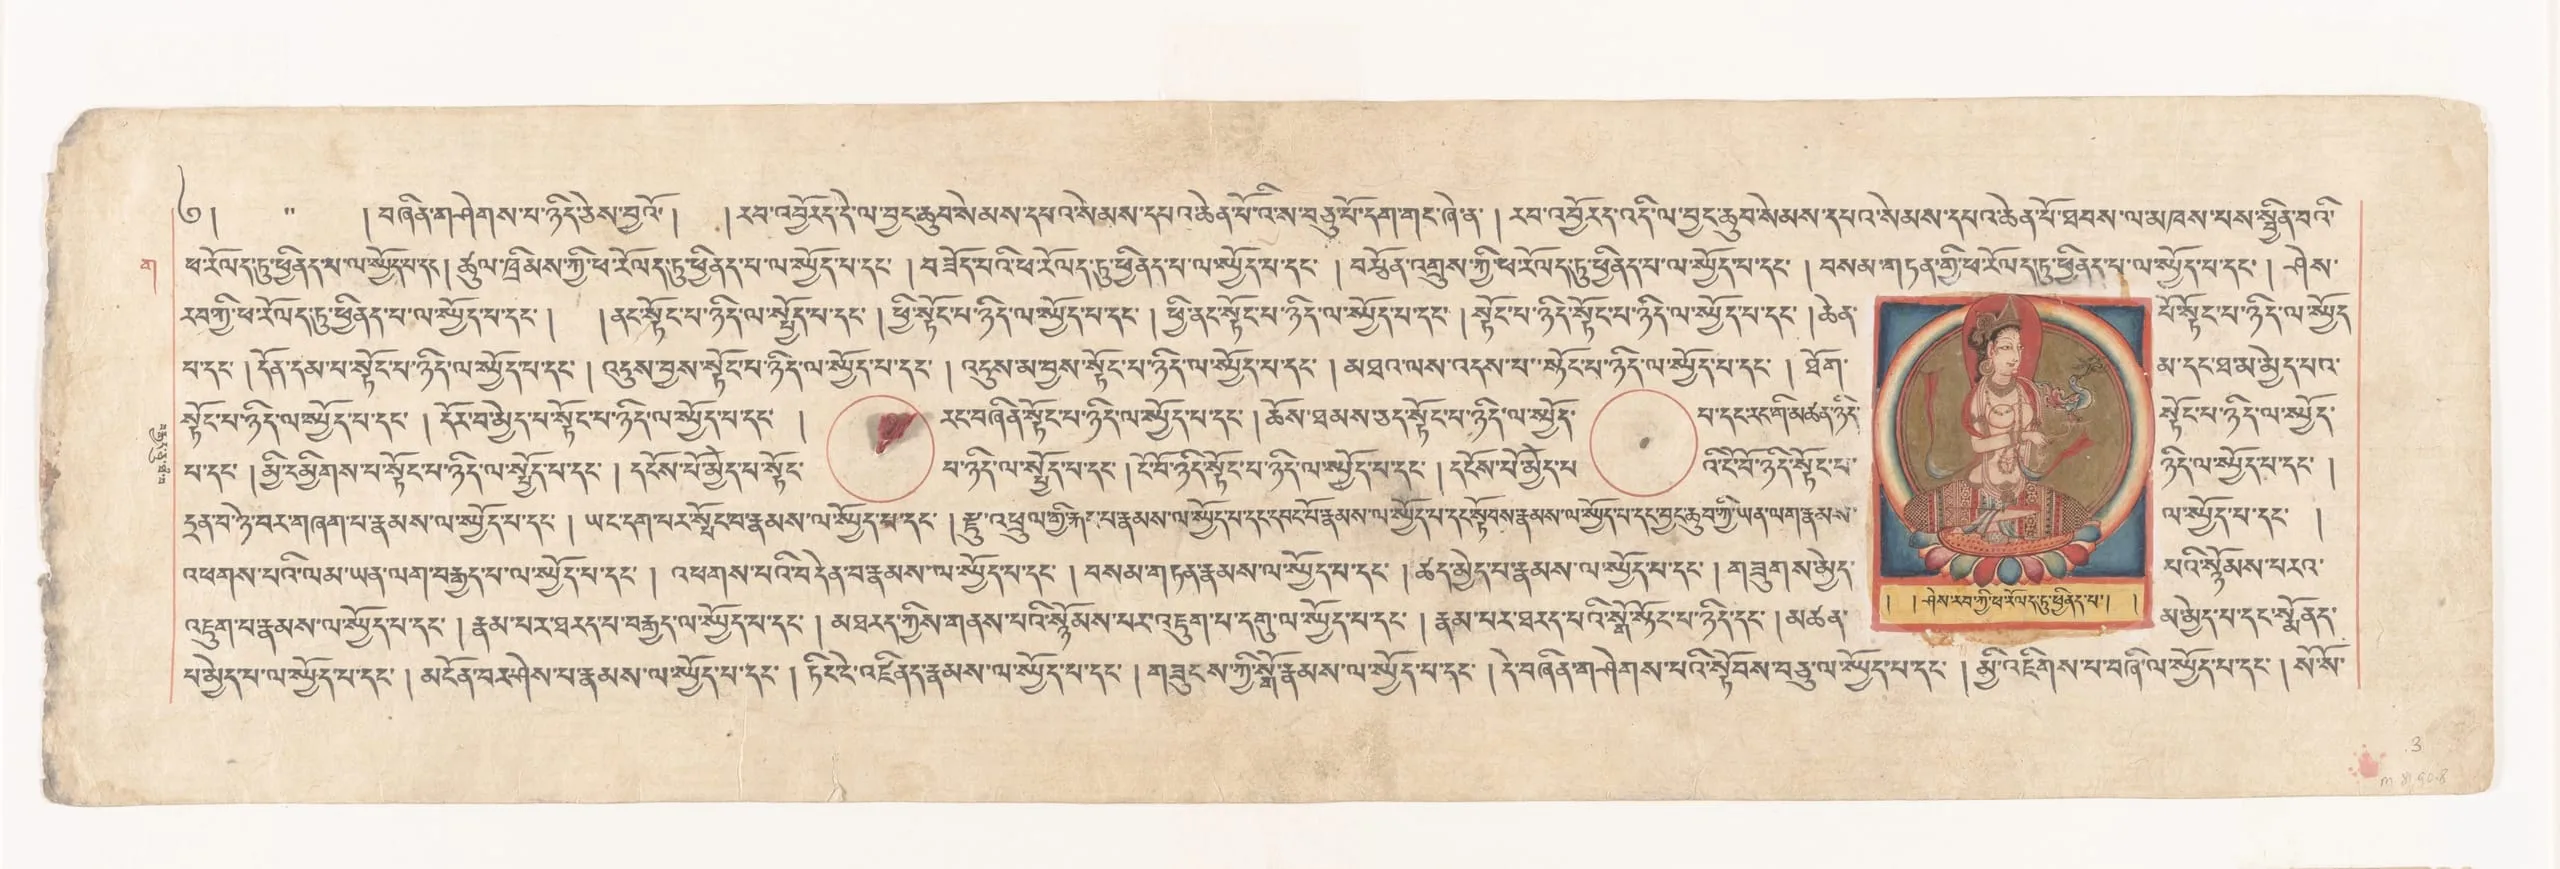 ༄། " །བཞིན་གཤེགས་པ་ཉིད་ཅེས་བྱའོ། །རབ་འབྱོརད་དེ་ལ་བྱང་ཆུབ་སེམས་དཔའ་སེམས་དཔའ་ཆེན་པོ་འི་ས་བཅུ་པོ་དག་གང་ཞེ་ན་།རབ་འབྱོརད་འདི་ལ་བྱང་ཆུབ་སེམས་དཔའ་སེམས་དཔའ་ཆེན་པོ་ཐབས་ལ་མཁས་པས་སྦྱིན་བའི་
ག
ཕ་རོལད་ཏུ་ཕྱིནད་པ་ལ་སྤྱོད་པ་དང།ཚུལ་ཁྲིམས་ཀྱི་ཕ་རོལད་ཏུ་ཕྱིནད་པ་ལ་སྤྱོད་པ་དང་།བཟོད་པའི་ཕ་རོལད་ཏུ་ཕྱིནད་པ་ལ་སྤྱོད་པ་དང་།བསྩོན་འགྲུས་ཀྱི་ཕ་རོལད་ཏུ་ཕྱིནད་པ་ལ་སྤྱོད་པ་དང་།བསམ་གཏན་གྱི་ཕ་རོལད་ཏུ་ཕྱིནད་པ་ལ་སྤྱོད་པ་དང་།ཤེས་
རབ་ཀྱི་ཕ་རོལད་ཏུ་ཕྱིནད་པ་ལ་སྤྱོད་པ་དང་། །ནང་སྟོང་པ་ཉིད་ལ་སྤྱོད་པ་དང་།ཕྱི་སྟོང་པ་ཉིད་ལ་སྤྱོད་པ་དང་།ཕྱི་ནང་སྟོང་པ་ཉིད་ལ་སྤྱོད་པ་དང་།སྟོང་པ་ཉིད་སྟོང་པ་ཉིད་ལ་སྤྱོད་པ་དང་།ཆེན་པོ་སྟོང་པ་ཉིད་ལ་སྤྱོད
པ་དང་།དོན་དམ་པ་སྟོང་པ་ཉིད་ལ་སྤྱོད་པ་དང་།འདུས་བྱས་སྟོང་པ་ཉིད་ལ་སྤྱོད་པ་དང་།འདུས་མ་བྱས་སྟོང་པ་ཉིད་ལ་སྤྱོད་པ་དང་།མཐའ་ལས་འདས་པ་སྟོང་པ་ཉིད་ལ་སྤྱོད་པ་དང་།ཐོག་མ་དང་ཐ་མ་མྱེད་པའ་
སྟོང་པ་ཉིད་ལ་སྤྱོད་པ་དང་།དོར་བ་མྱེད་པ་སྟོང་པ་ཉིད་ལ་སྤྱོད་པ་དང་།རང་བཞིན་སྟོང་པ་ཉིད་ལ་སྤྱོད་པ་དང་།ཆོས་ཐམས་ཅད་སྟོང་པ་ཉིད་ལ་སྤྱོད་པ་དང་རང་གི་མཚན་ཉིད་སྟོང་པ་ཉིད་ལ་སྤྱོད་
པ་དང་།མྱི་དམྱིགས་པ་སྟོང་པ་ཉིད་ལ་སྤྱོད་པ་དང་།དངོས་པོ་མྱེད་པ་སྟོང་པ་ཉིད་ལ་སྤྱོད་པ་དང་།ངོ་བོ་ཉིད་སྟོང་པ་ཉིད་ལ་སྤྱོད་པ་དང་།དངོས་པོ་མྱེད་པའི་ངོ་བོ་ཉིད་སྟོང་པ་ཉིད་ལ་སྤྱོད་པ་དང་།
དྲན་བ་ཉེ་བར་གཞག་པ་རྣམས་ལ་སྤྱོད་པ་དང་།ཡང་དག་པར་སྤོང་བ་རྣམས་ལ་སྤྱོད་པ་དང་།རྫུ་འཕྲུལ་གྱི་རྐང་པ་རྣམས་ལ་སྤྱོད་པ་དང་དབང་པོ་རྣམས་ལ་སྤྱོད་པ་དང་སྟོབས་རྣམས་ལ་སྤྱོད་པ་དང་བྱང་ཆུབ་ཀྱི་ཡན་ལག་རྣམས་ལ་སྤྱོད་པ་དང་།
འཕགས་པའི་ལམ་ཡན་ལག་བརྒྱད་པ་ལ་སྤྱོད་པ་དང་།འཕགས་པའི་བདེན་བ་རྣམས་ལ་སྤྱོད་པ་དང་།བསམ་གཏན་རྣམས་ལ་སྤྱོད་པ་དང་།ཚད་མྱེད་པ་རྣམས་ལ་སྤྱོད་པ་དང་།གཟུགས་མྱེད་པའི་སྙོམས་པརའ་
འཇུག་པ་རྣམས་ལ་སྤྱོད་པ་དང་།རྣམ་པར་ཐརད་པ་བརྒྱད་ལ་སྤྱོད་པ་དང་།མཐརད་ཀྱིས་གནས་པའི་སྙོམས་པར་འཇུག་པ་དགུ་ལ་སྤྱོད་པ་དང་།རྣམ་པར་ཐརད་པའི་སྒོ་སྟོང་པ་ཉིད་དང་།མཚན་མ་མྱེད་པ་དང་སྨོནད་
པ་མྱེད་པ་ལ་སྤྱོད་པ་དང་།མངོན་བར་ཤེས་པ་རྣམས་ལ་སྤྱོད་པ་དང་།ཏིང་ངེ་འཛིནད་རྣམས་ལ་སྤྱོད་པ་དང་།གཟུངས་ཀྱི་སྒོ་རྣོམས་ལ་སྤྱོད་པ་དང་།དེ་བཞིན་གཤེགས་པའི་སྟོབས་བཅུ་ལ་སྤྱོད་པ་དང་།མྱི་འཇིགས་པ་བཞི་ལ་སྤྱོད་པ་དང་།སོ་སོ་
། །ཤེས་རབ་ཀྱི་ཕ་རོལད་ཏུ་ཕྱིནད་པ་། །
3